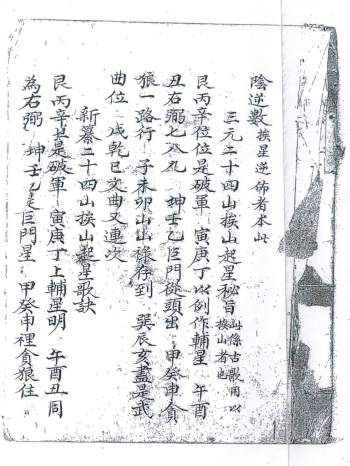 陰逆數挨星逆佈者本此
三元二十四山挨山起星秘旨 此係古歌用以挨山者也
艮丙辛位位是破軍 寅庚丁以例作輔星 午酉
丑右弼七八九 坤壬乙巨門從頭出 甲癸申貪
狼一路行 子未卯山山祿存到 巽辰亥盡是武
曲位 戌乾巳文曲又連次
新纂二十四山挨山起星歌訣
艮丙辛是破軍 寅庚丁上輔星明 午酉丑同
為右弼 坤壬乙是巨門星 甲癸申裡貪狼住